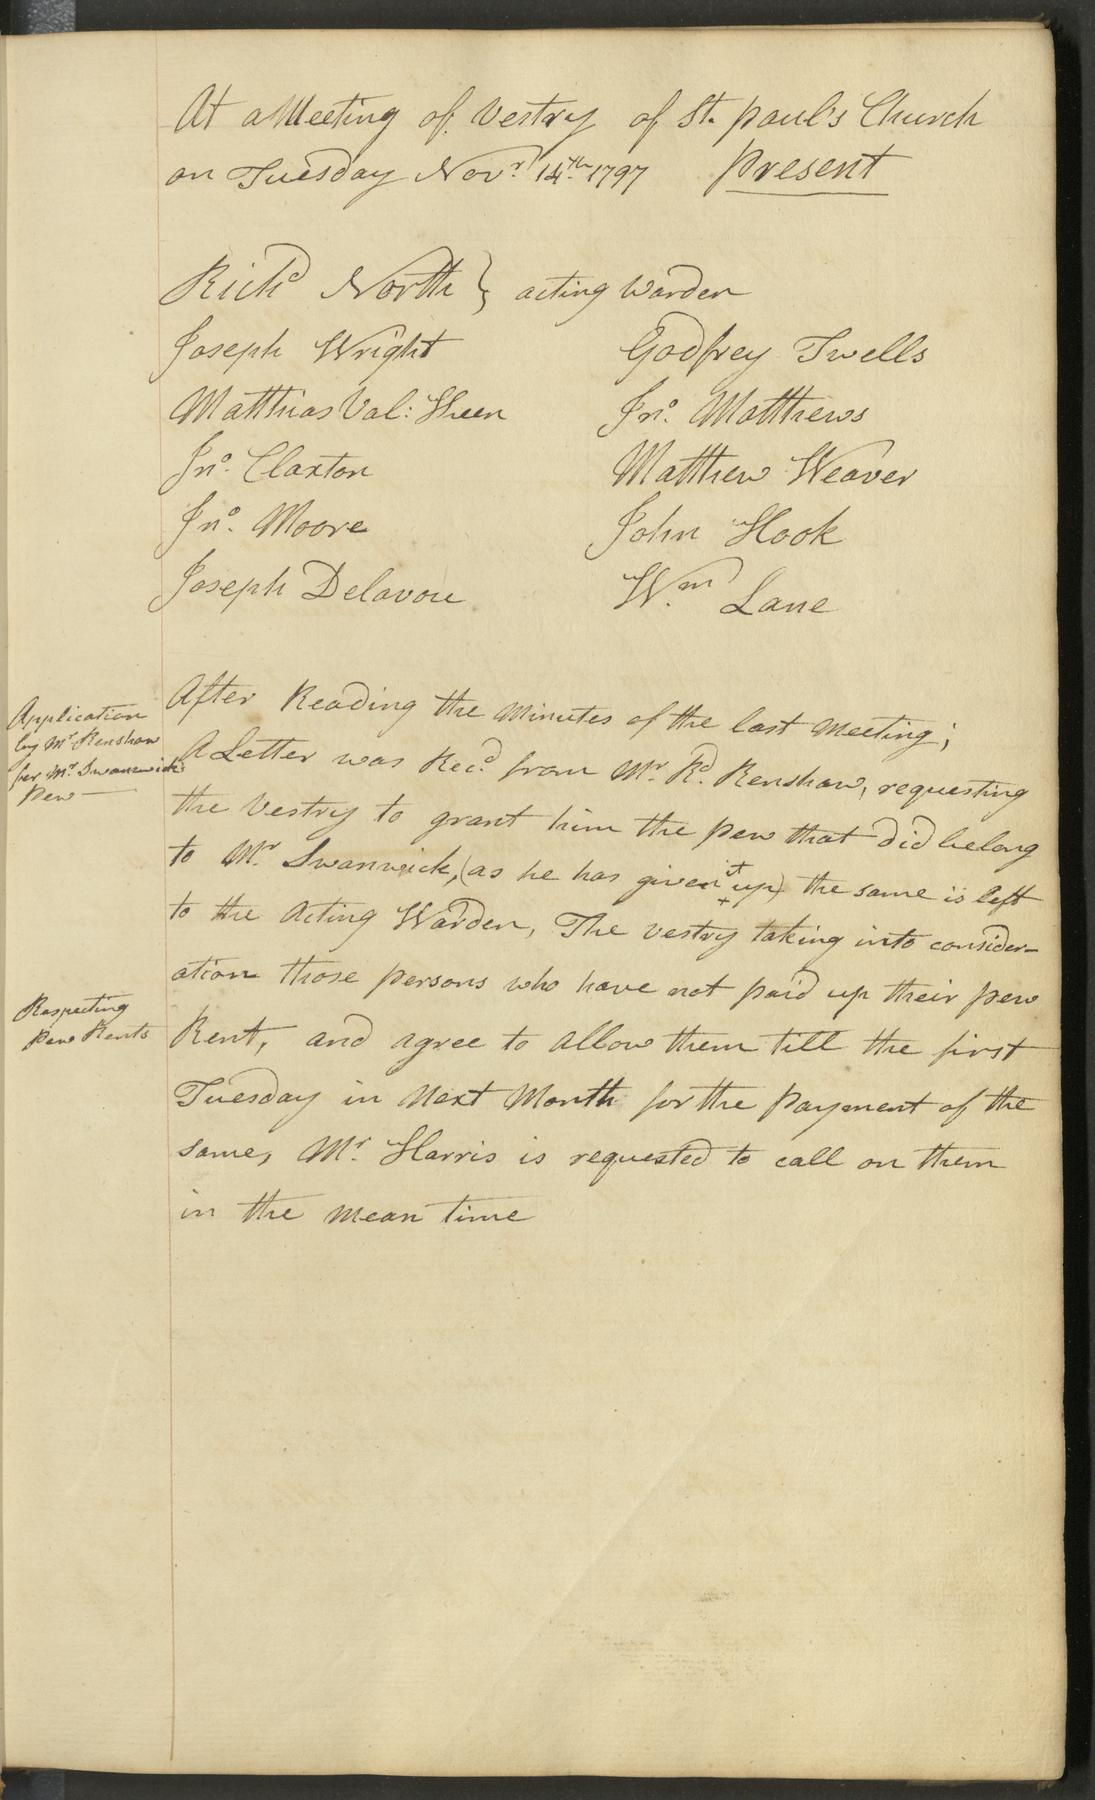 At a Meeting of Vestry of St. Paul's Church
on Tuesday Novr. 14th. 1797 Present
Richd North } acting Warden
Joseph Wright Godfrey Twells
Matthias Val: Skeen Jno. Matthews
Jno. Claxton Matthew Weaver
Jno. Moore John Hook
Joseph Delavou Wm. Lane
Application
by Mr. Renshaw
for Mr. Swanwick's
Pew —
After Reading the Minutes of the last Meeting;
A Letter was Recd. from Mr. Rd. Renshaw, requesting
the Vestry to grant him the pew that did belong
to Mr. Swanwick, (as he has given it up) the same is left
to the Acting Warden, The vestry taking into consider-
ation those persons who have not paid up their pew
Respecting
Pew Rents
Rent, and agree to allow them till the first
Tuesday in Next Month for the Payment of the
same, Mr. Harris is requested to call on them
in the mean time